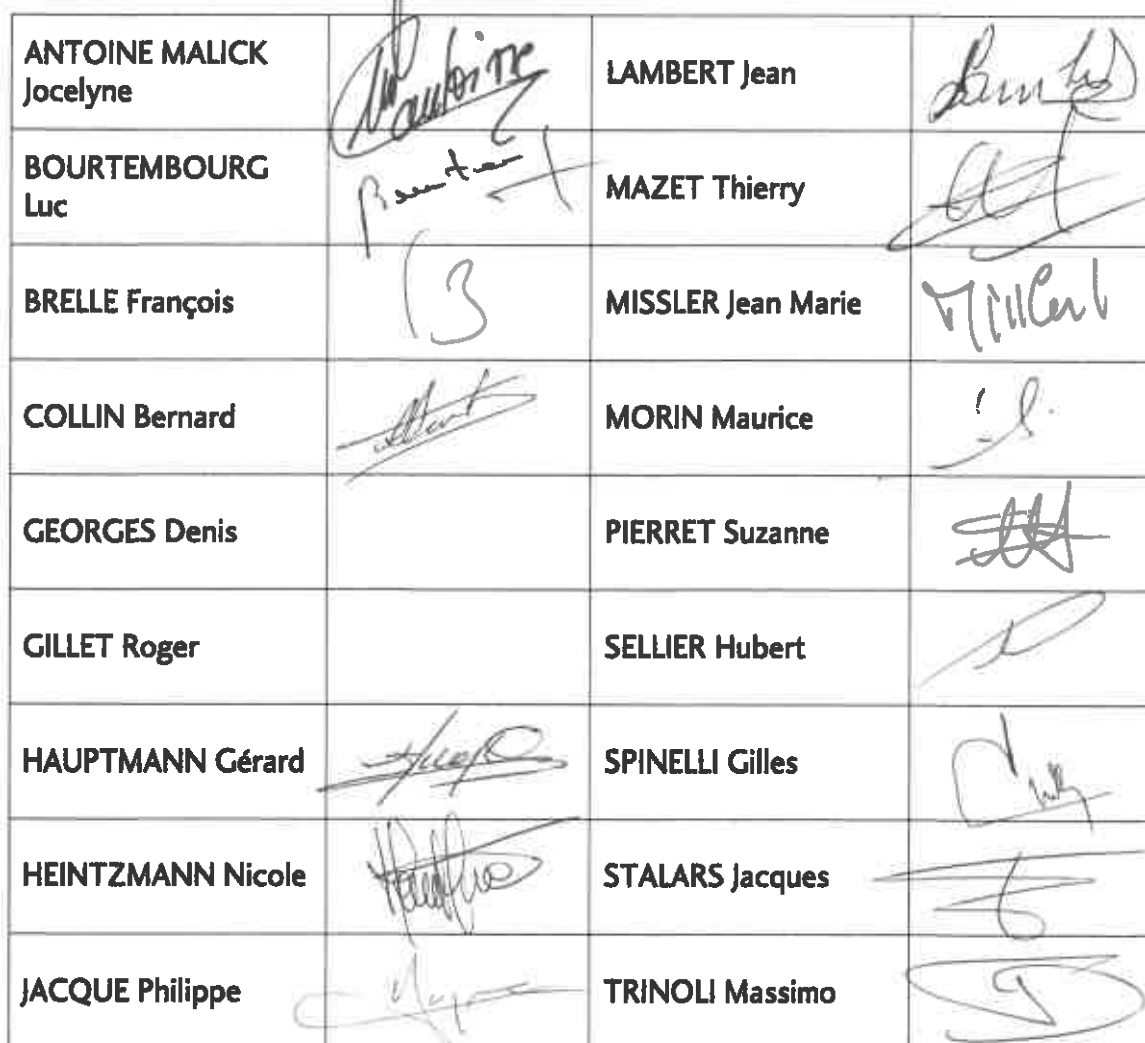 ANTOINE MALICK
Jocelyne
LAMBERT Jean
BOURTEMBOURG
Luc
MAZET Thierry
BRELLE François
MISSLER Jean Marie
COLLIN Bernard
MORIN Maurice
GEORGES Denis
PIERRET Suzanne
GILLET Roger
SELLIER Hubert
HAUPTMANN Gérard
SPINELLI Gilles
HEINTZMANN Nicole
STALARS Jacques
JACQUE Philippe
TRINOLI Massimo